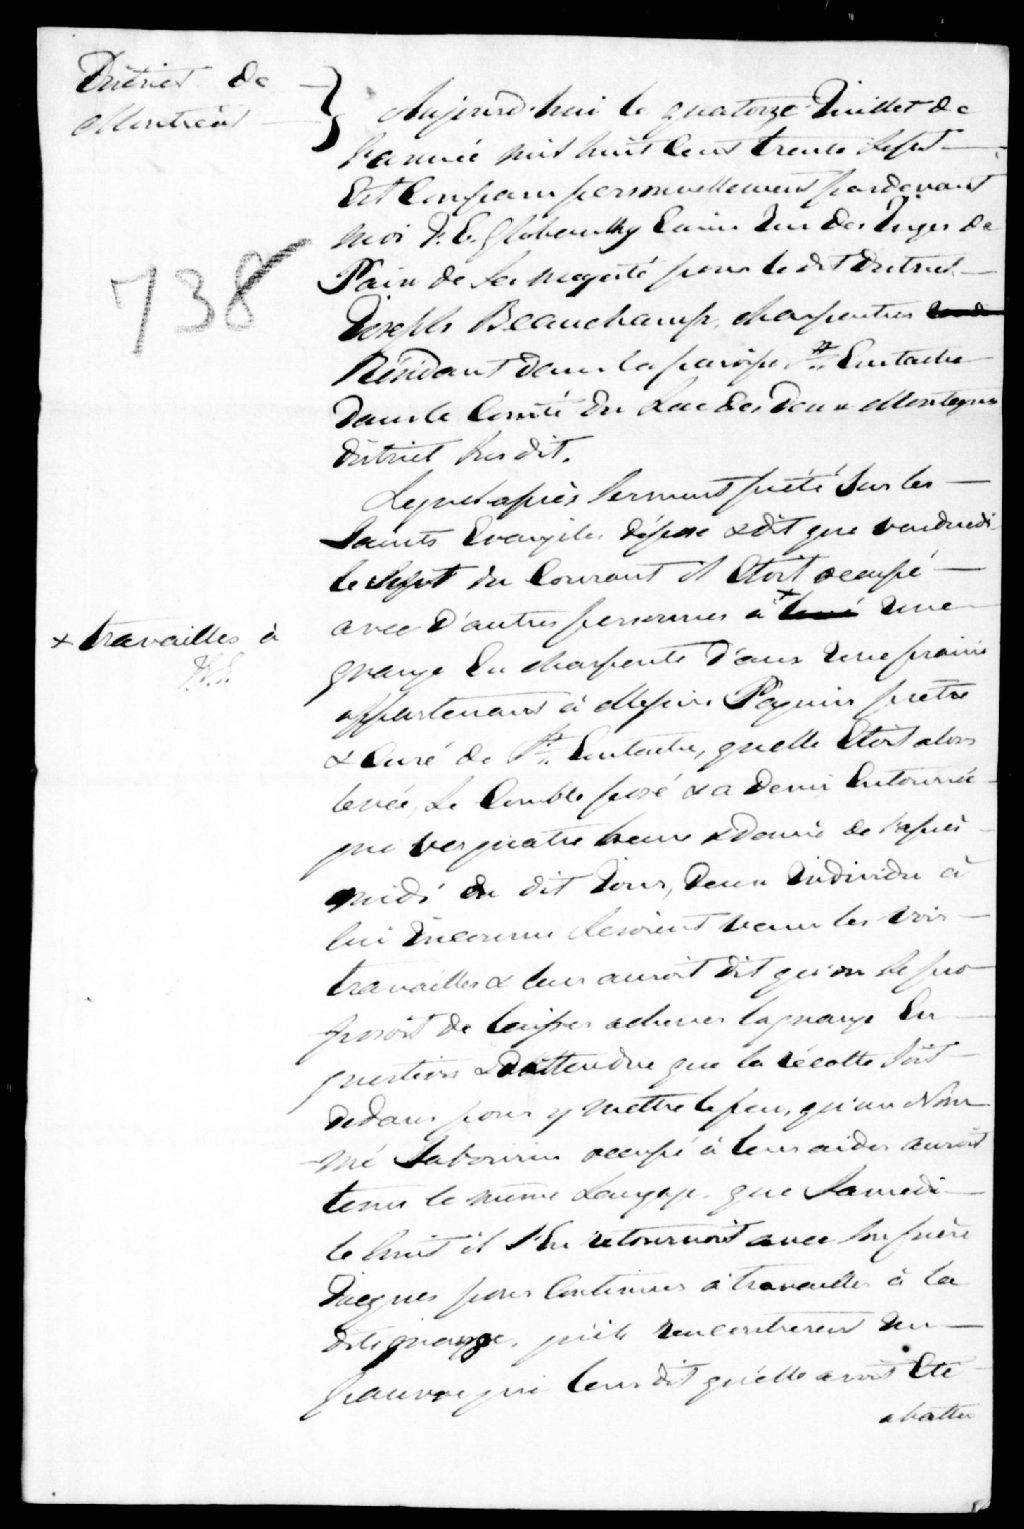 District de
Montréal
738
Aujourd'hui le quatorze Juillet de
l'année mil huit cent trente sept
Est comparu personnellement pardevant
moi Ecuier Un des Juges de
Paix de Sa Majesté pour le dit District
Joseph Beauchamp, charpentier
Résidant dans la paroisse St. Eustache
dans le Comté du Lac des Deux Montagnes
district susdit.
Lequel après serment prêté sur les
Saints Evangiles dépose & dit que vendredi
le Sept du Courant il étoit occupé
avec d'autres personnes a + levé une
+ travailler à
grange en charpente dans une prairie
appartenant à Messire Paquin prêtre
& Curé de St. Eustache, quelle étoit alors
levée, le Comble posé & a demi entourée
que vers quatre heure & demie de l'après
midi du dit Jour, deux individu à
lui inconnu seroient venu les voir
travailler & leur auroit dit qu'on se pro
posoit de laisser achever la grange En
question & d'attendre que la récolte soit
dedans pour y mettre le feu, qu'un Nom
mé Sabourin occupé à leur aider auroit
tenu le même Langage, que Samedi
le huit il s'en retournoit avec son frère
Jacques pour Continuer à travailler à la
dite grange, qu'ils rencontrerent un
pauvre qui leur dit qu'elle avoit été
abattu